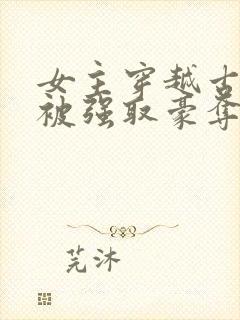 女主穿越古
被强取豪夺
芫沐